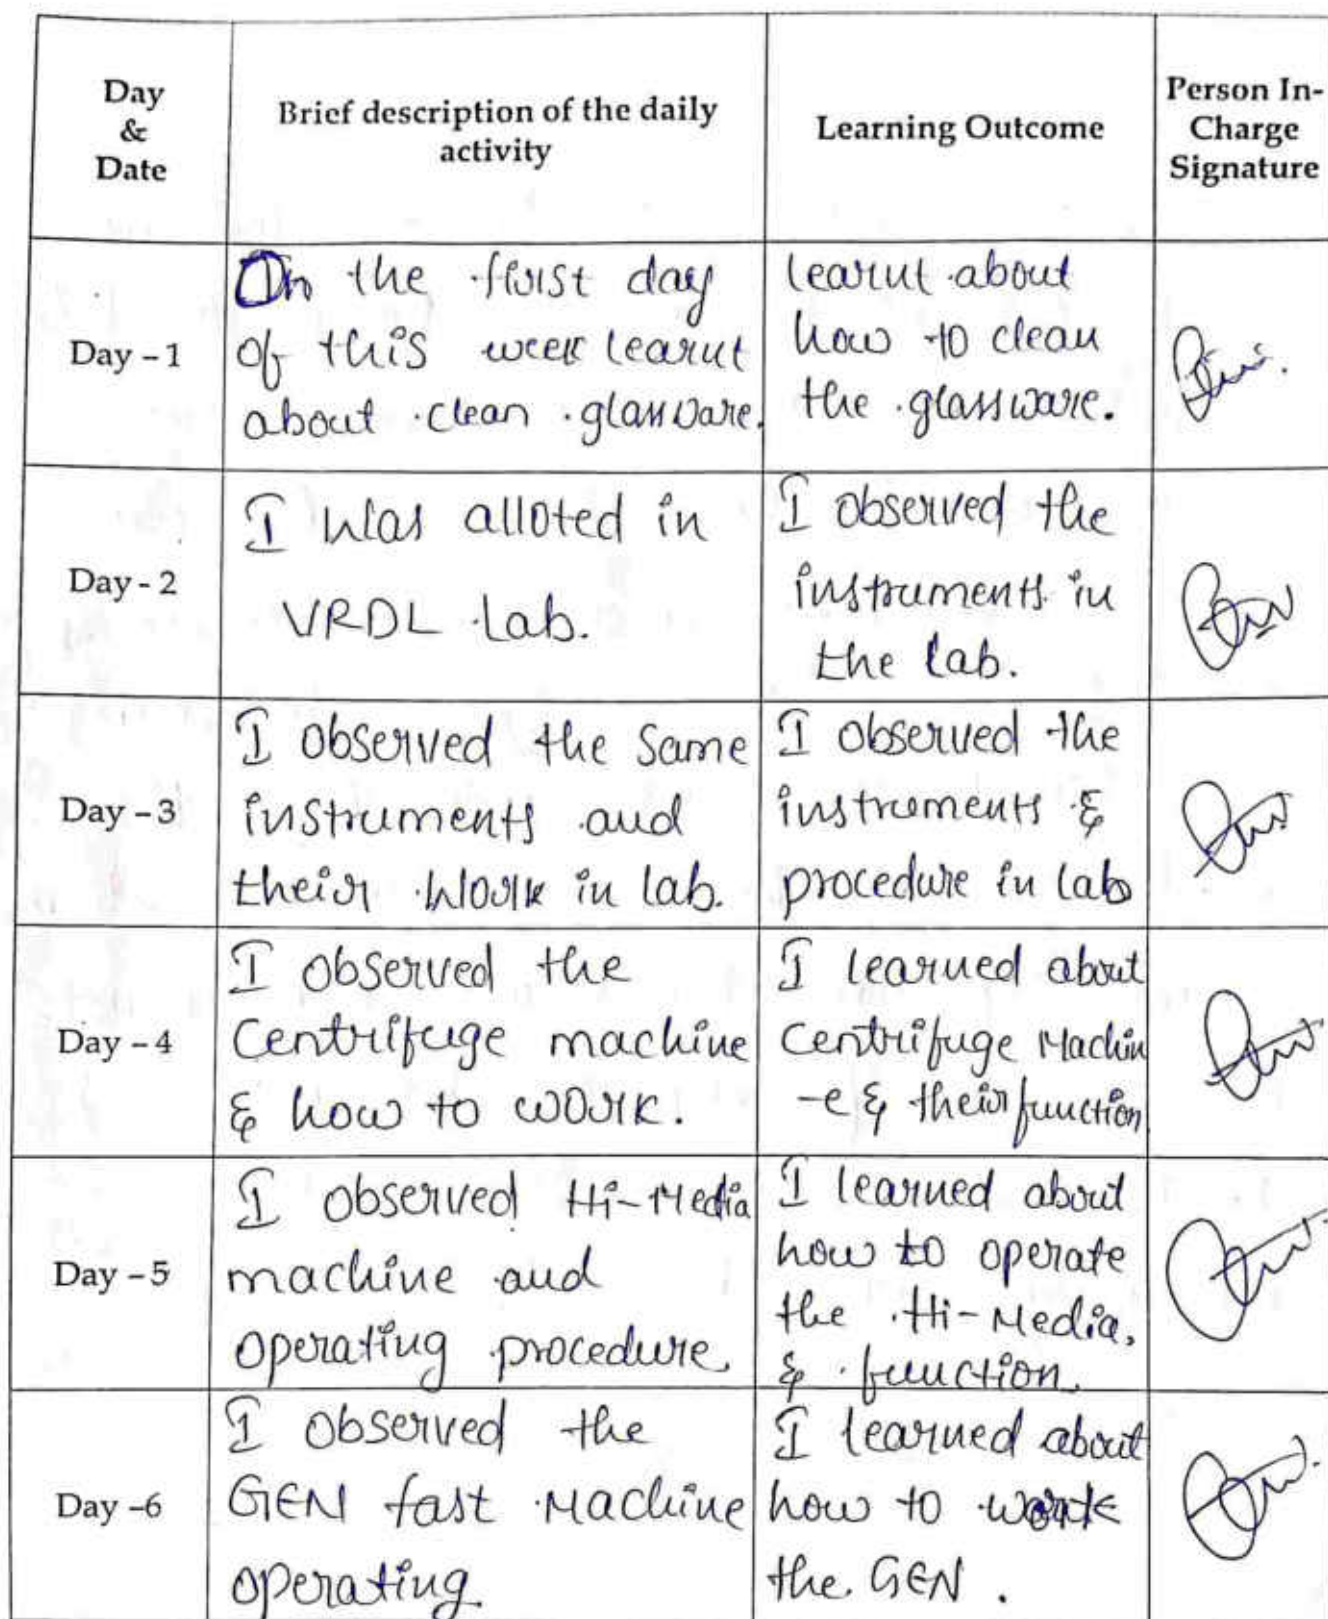 Day
&
Date
Brief description of the daily
activity
Learning Outcome
Person In-
Charge
Signature
Day – 1
On the first day
of this week learnt
about clean glassware.
learnt about
how to clean
the glassware.
Day - 2
I was alloted in
VRDL Lab.
I observed the
instruments in
the lab.
Day –3
I observed the same
instruments and
their work in lab.
I observed the
instruments &
procedure in lab
Day – 4
I observed the
Centrifuge machine
& how to work.
I learned about
Centrifuge Machin
-e & their function
Day – 5
I observed Hi-Media
machine and
operating procedure.
I learned about
how to operate
the Hi-Media.
& function.
Day –6
I observed the
GEN fast Machine
operating.
I learned about
how to work
the GEN.